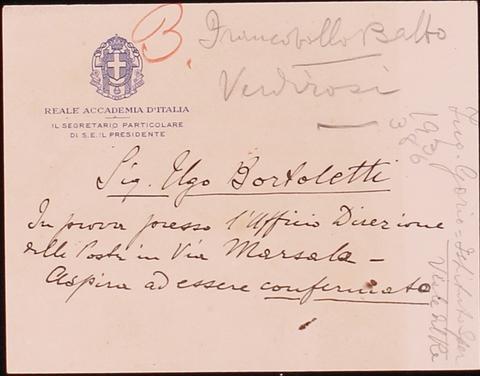 B.
Francobollo Balbo
Verdirosi
REALE ACCADEMIA D'ITALIA
IL SEGRETARIO PARTICOLARE
DI S.E. IL PRESIDENTE
Sig. Ugo Bortoletti
In prova presso l'Ufficio Direzione
delle Poste in Via Marsala -
Aspira ad essere confermato
Ing. Istituto